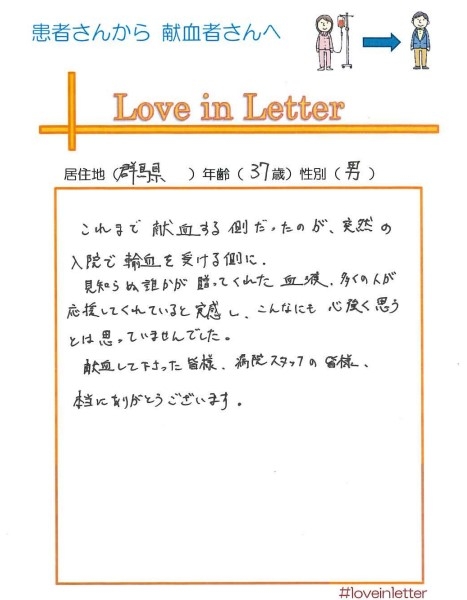 患者さんから 献血者さんへ
Love in Letter
居住地（群馬県　）年齢（37歳）性別（男）
これまで献血する側だったのが、突然の
入院で輸血を受ける側に。
見知らぬ誰かが贈ってくれた血液、多くの人が
応援してくれていると実感し、こんなにも心強く思う
とは思っていませんでした。
献血して下さった皆様、病院スタッフの皆様、
本当にありがとうございます。
#loveinletter